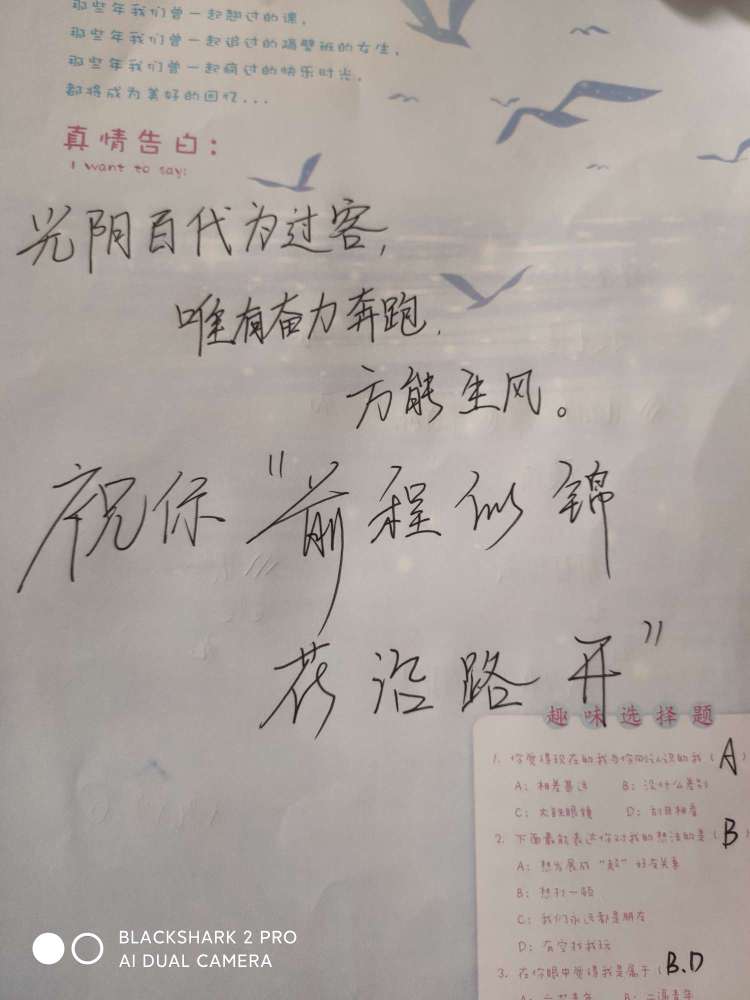 那些年我们曾一起翘过的课,
那些年我们曾一起追过的隔壁班的女生,
那些年我们曾一起疯过的快乐时光,
都将成为美好的回忆...
真情告白:
I want to say:
光阴百代为过客,
唯有奋力奔跑,
方能生风。
祝你“前程似锦
花沿路开”
趣味选择题
1. 你觉得现在的我与你刚认识的我(A)
A: 相差甚远 B: 没什么差别
C: 大跌眼镜 D: 刮目相看
2. 下面最能表达你对我的想法的是(B)
A: 想发展成“超”好友关系
B: 想扑一顿
C: 我们永远都是朋友
D: 有空找我玩
3. 在你眼中觉得我是属于(B.D
BLACKSHARK 2 PRO
AI DUAL CAMERA